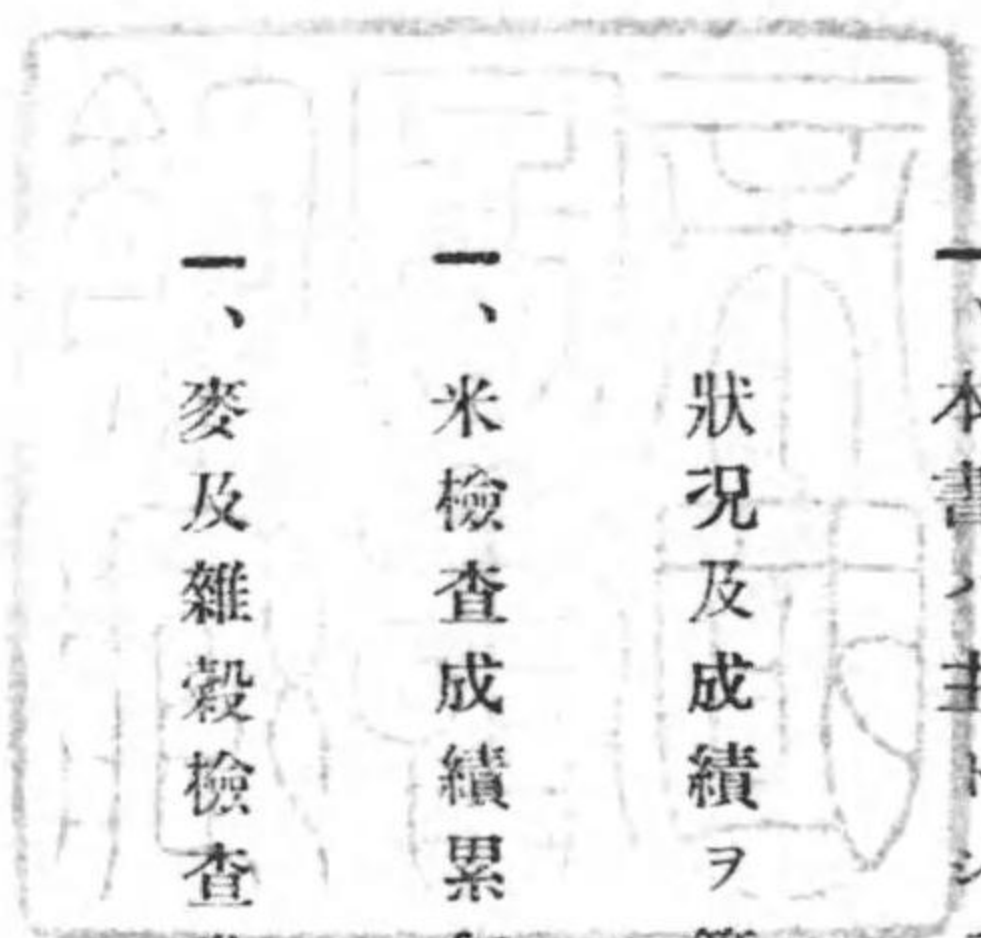 一、本書ハ主トシ
狀況及成績ヲ
一、米檢査成績累
一、麥及雜穀檢査